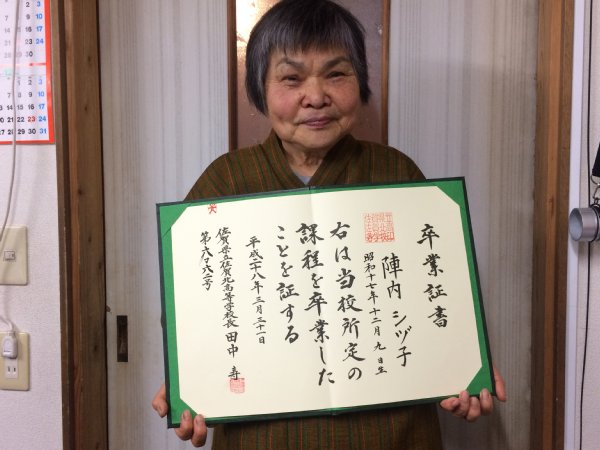 卒業証書
陣内 シヅ子
昭和十七年 十二月 九 日生
右は当校所定の
課程を卒業した
ことを証する
平成二十八年 三月 三十一日
佐賀県立佐賀北高等学校長 田中 寿
3
10
17
24
2
3
9
10
16
17
22
23
24
27
28
29
30
31